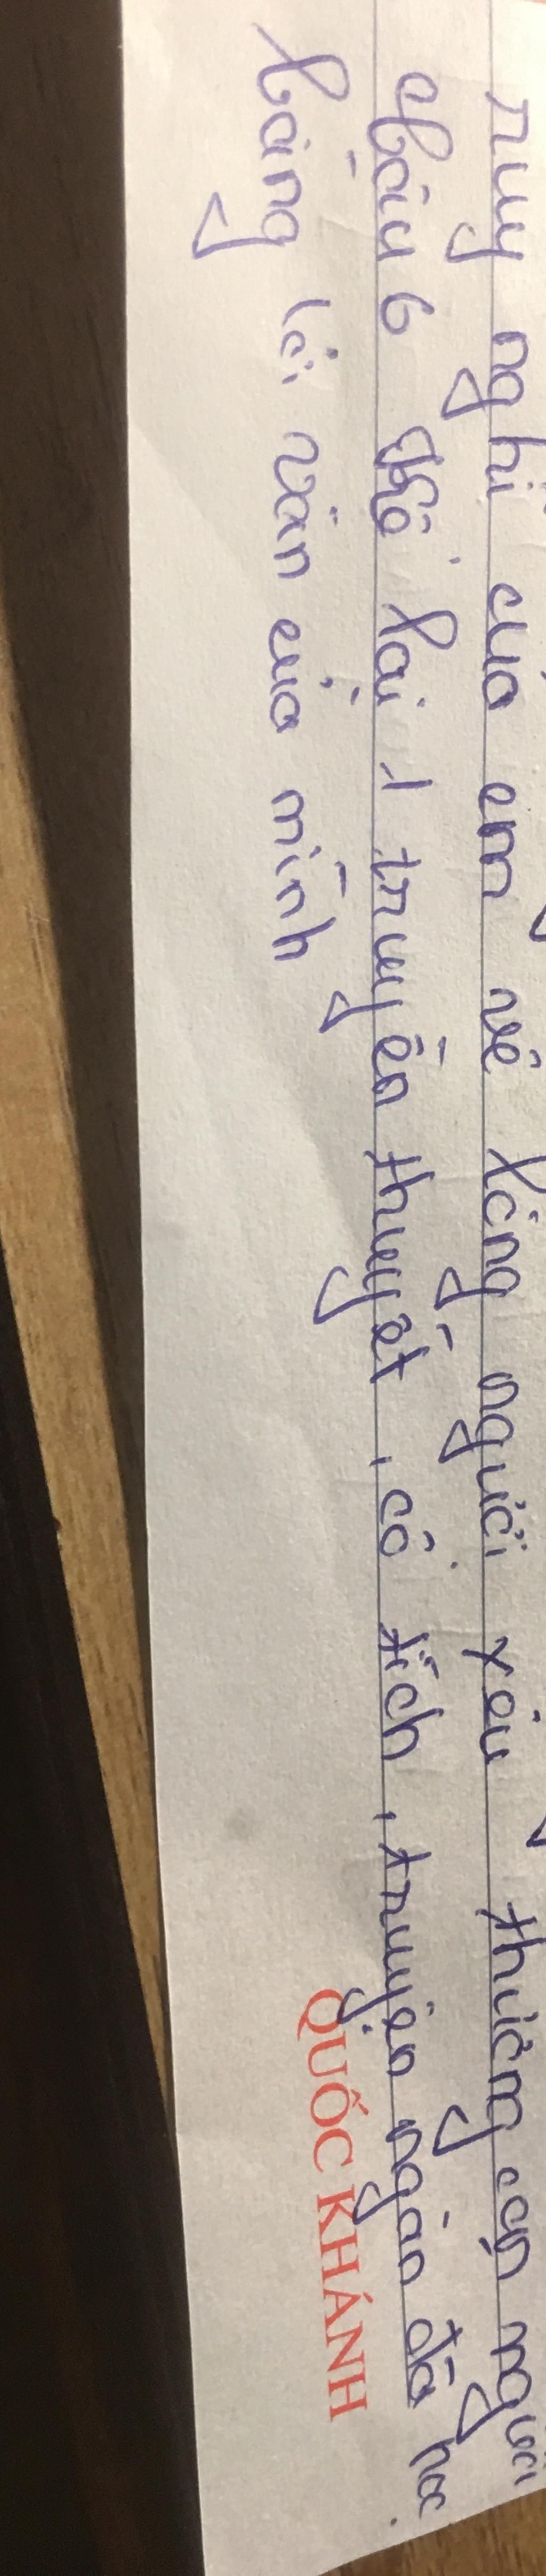 suy nghĩ của em về lòng người yêu thương con người
Câu 6 Kể lại 1 truyền thuyết, cổ tích, truyện ngắn đã học
bằng lời văn của mình
QUỐC KHÁNH